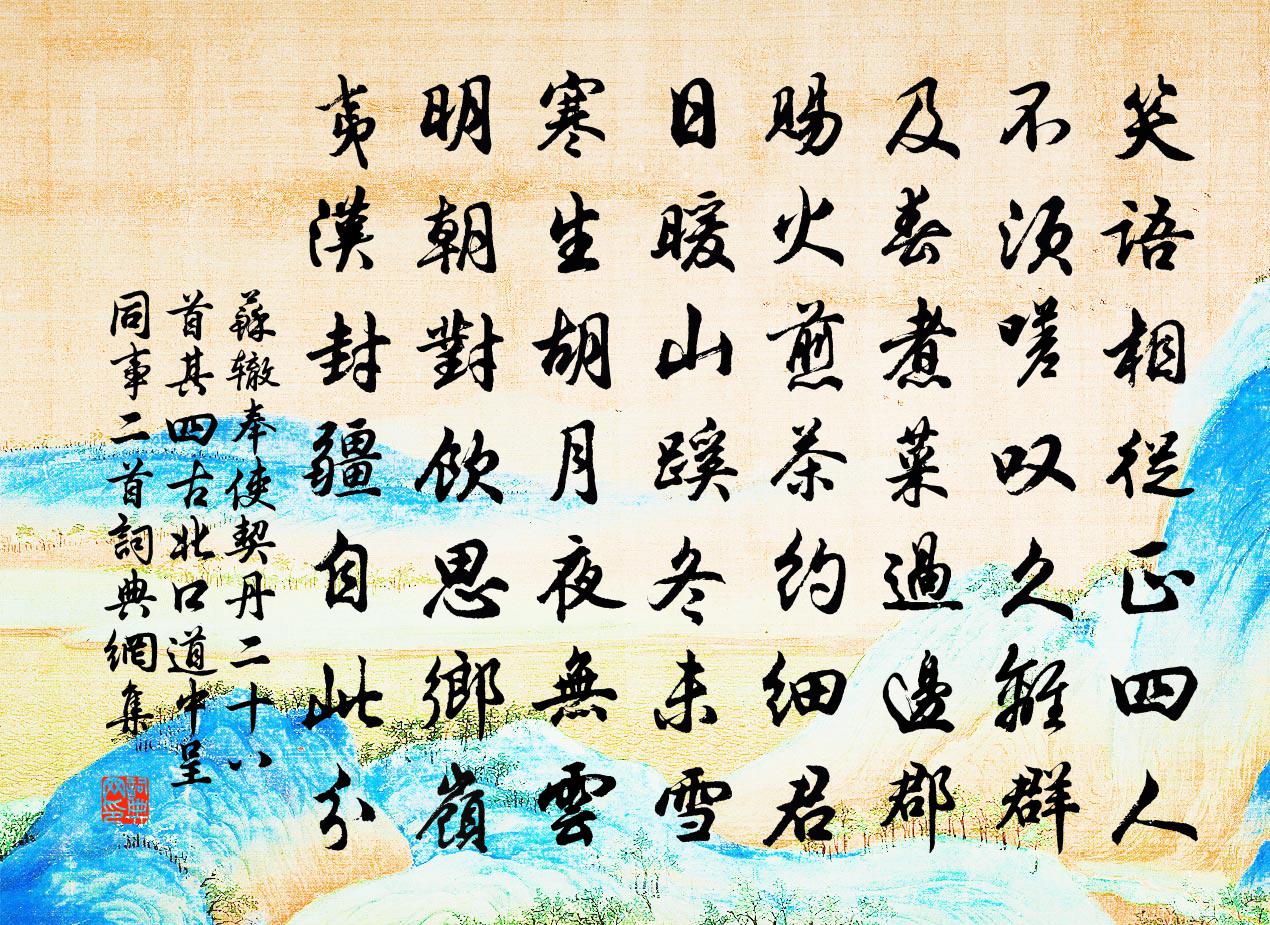 笑語相從正四人
不須嗟叹久離群
及春煮菜過邊郡
賜火煎茶約細君
日暖山蹊冬未雪
寒生胡月夜無雲
明朝對飲思鄉嶺
夷漢封疆自此分
蘇辙奉使契丹二十八
首其四古北口道中呈
同事二首詞典網集